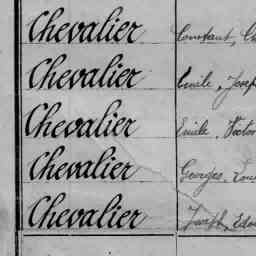 Chevalier Constant,
Chevalier Emile, Joseph
Chevalier Emile, Victor
Chevalier Georges, Loui
Chevalier Joseph, Edou